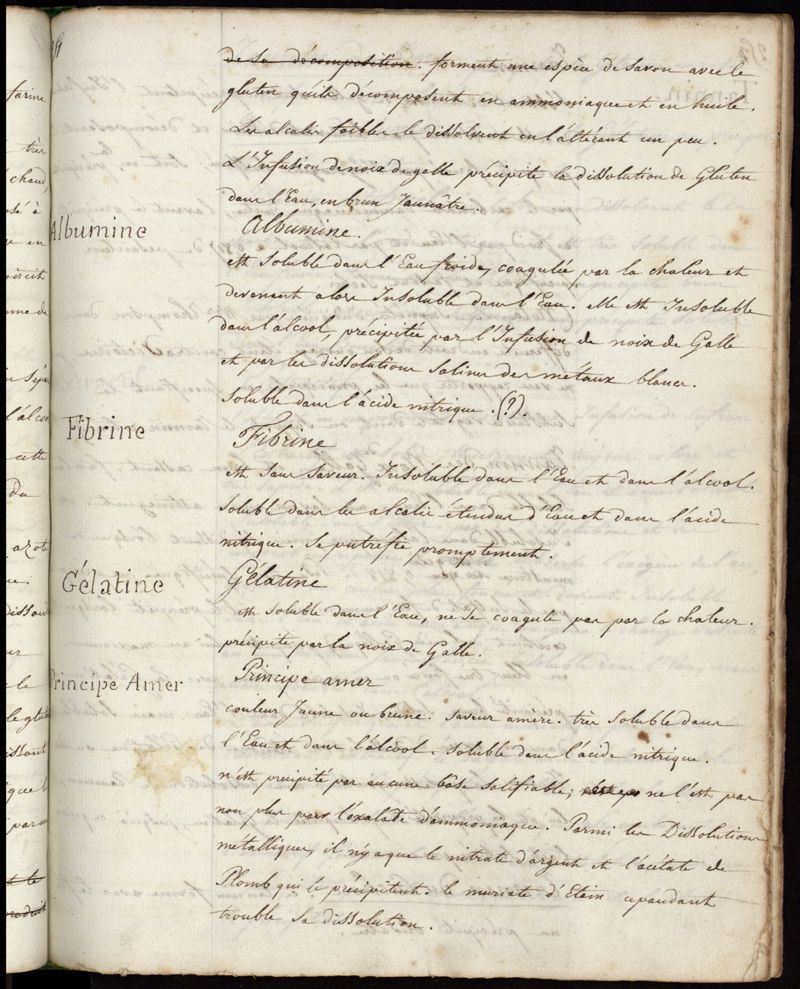 de sa décomposition. forment une espèce de savon avec le
gluten qu'ils décomposent en ammoniaque et en huile.
Les alcalis foibles le dissolvent en l'altérant un peu.
L'Infusion de noix de galle précipite la dissolution de Gluten
dans l'Eau, en brun Jaunâtre.
Albumine
Albumine.
est soluble dans l'Eau froide, coagulée par la chaleur et
devenant alors Insoluble dans l'Eau. elle est Insoluble
dans l'álcool, précipitée par l'Infusion de noix de Galle
et par les dissolutions salines des métaux blancs.
soluble dans l'ácide nitrique. (?).
Fibrine
Fibrine
est sans saveur. Insoluble dans l'Eau et dans l'álcool.
soluble dans les alcalis étendus d'Eau et dans l'ácide
nitrique. se putrefie promptement.
Gélatine
Gélatine
est soluble dans l'Eau, ne se coagule pas par la chaleur.
précipite par la noix de Galle.
Principe Amer
Principe amer
couleur Jaune ou brune. saveur amère. très soluble dans
l'Eau et dans l'álcool. soluble dans l'ácide nitrique.
n'est precipité par aucune báse salifiable; ne l'est pas
non plus par l'oxalate d'ammoniaque. Parmi les Dissolutions
métalliques, il n'y a que le nitrate d'argent et l'ácétate de
Plomb qui le précipitent. le muriate d'Etain cependant
trouble sa dissolution.
farine
très
chaud,
sé à
en
l'álco
cette
Du
azot
dissou
le
le glu
issant
que l
par